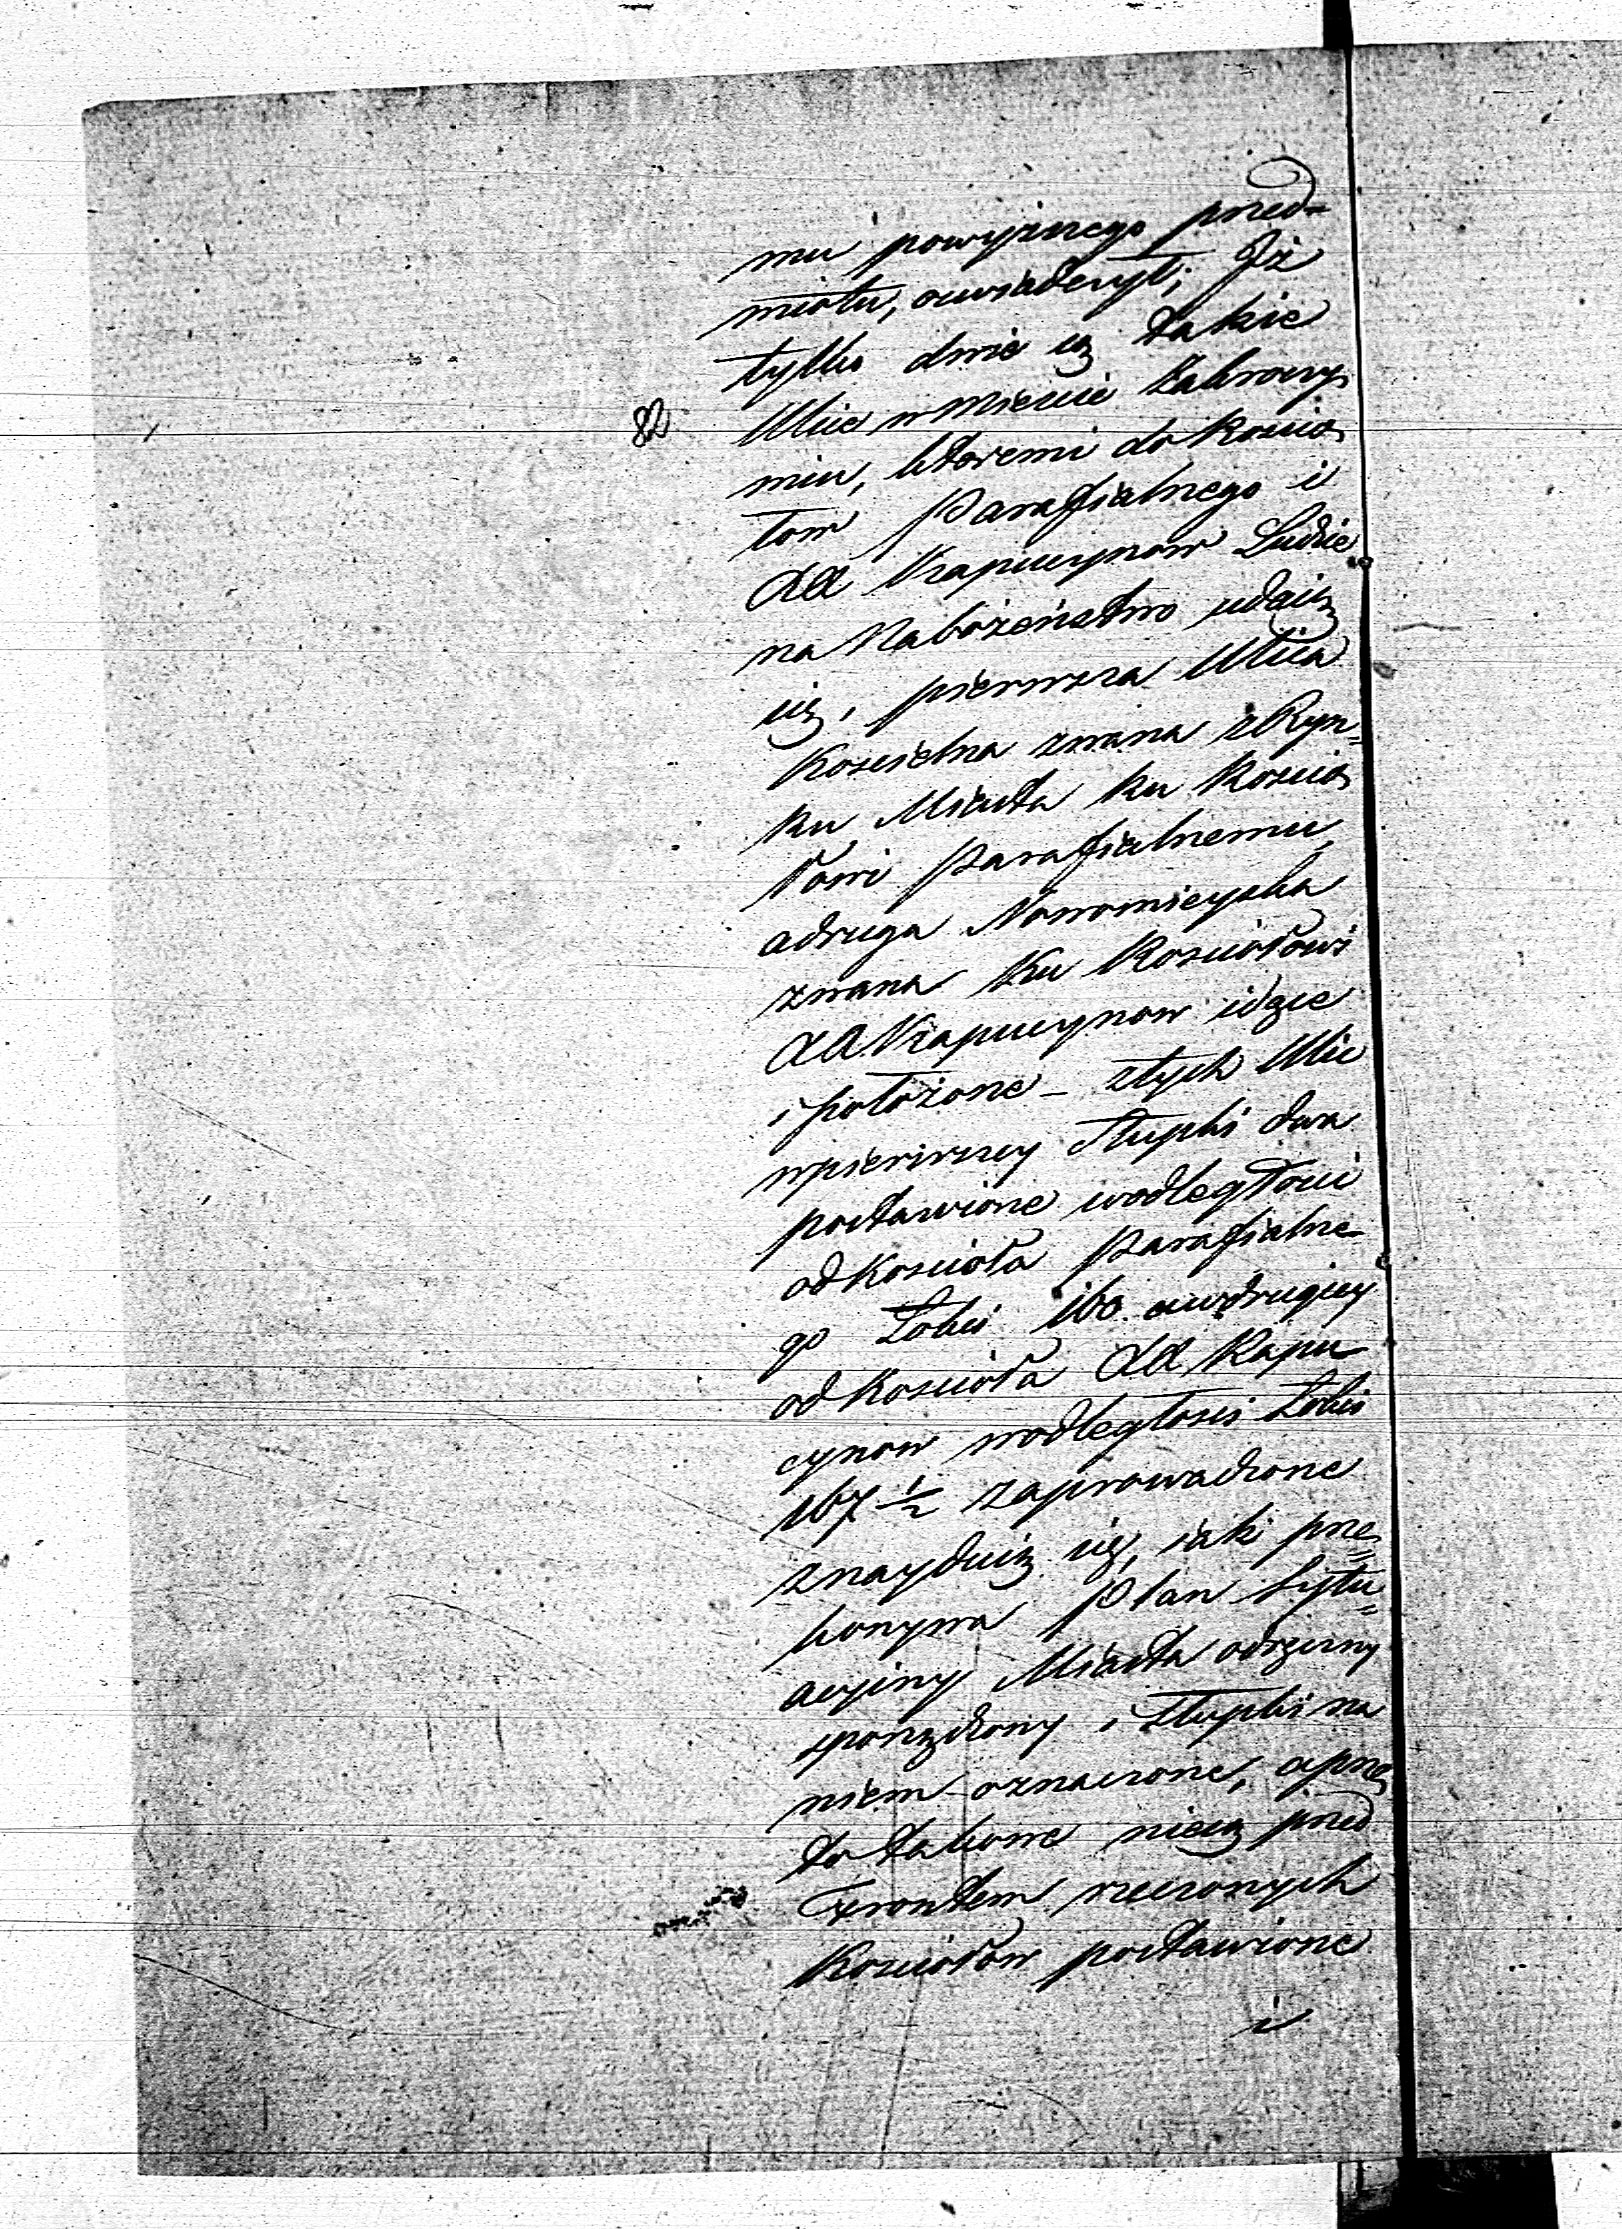 mu powyższego przed-
miotu, oswiadczył; Jż
tylko dwie są takie
Ulice w Miescie Zakroczy,
82
miu, ktoremi do Koscio,
łow Parafialnego i
XX Kapucynow Ludzie
na Nabożeństwo udaią
się, pierwsza Ulica
Koscielna zwana z Ryn,
ku Miasta ku Koscio,
łowi Parafialnemu,
a druga Nowomieyska
zwana ku Kosciołowi
XX Kapucynow idące
i położone – z tych Ulic
w pierwszey Słupki dwa
postawione w odległosci
od Kosciola Parafialne-
go Łokci 160. a w drugiey
od Kościoła XX Kapu-
cynow w odległosci Łokci
167 ½ zaprowadzone
znayduią się, iak prze=
konywa Plan Sytu=
acyiny Miasta odręczny
sporządzony i Słupki na
niem oznaczone, a prze,
to takowe nie są przed
Frontem rzeczonych
Kosciołow postawione
i